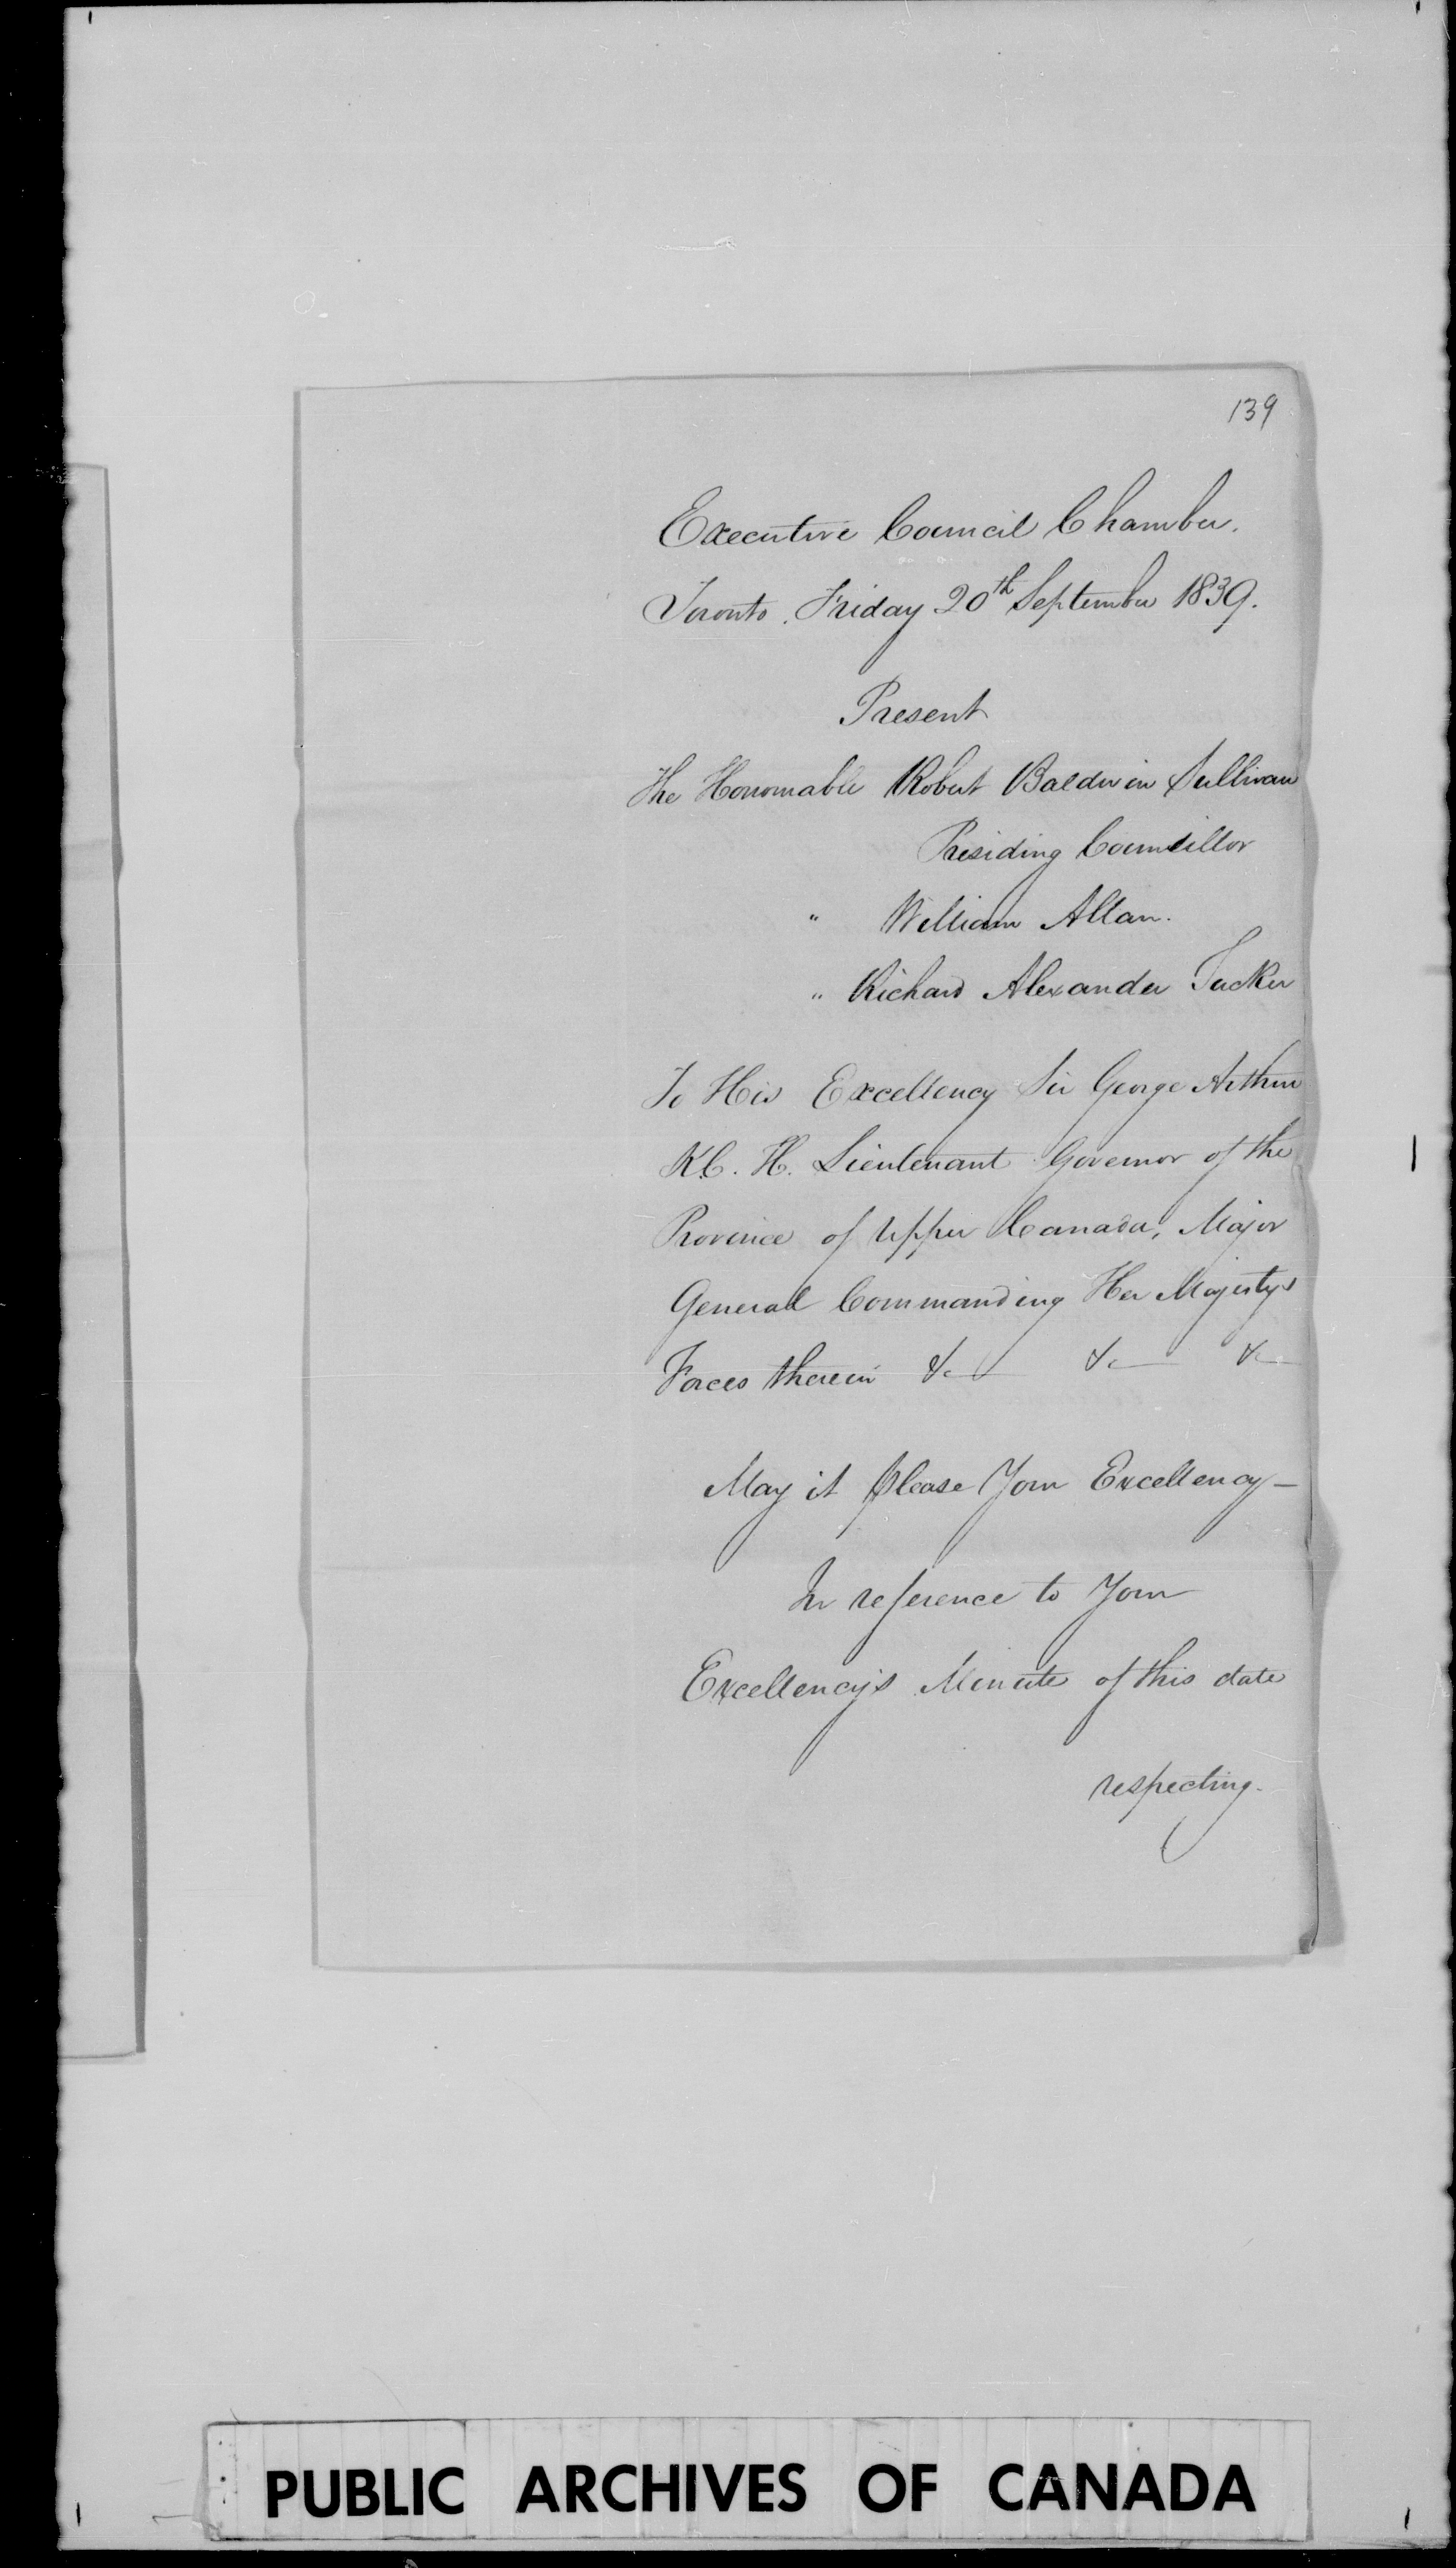 139
Executive Council Chamber.
Toronto. Friday 20th September 1839.
Present
The Honourable Robert Baldwin Sullivan
Presiding Councillor
" William Allan.
" Richard Alexander Tucker
To His Excellency Sir George Arthur
K.C.H. Lieutenant Governor of the
Province of Upper Canada, Major
General Commanding Her Majestys
Forces therein &c &c &c
May it please Your Excellency—
In reference to Your
Excellency's Minute of this date
respecting.
PUBLIC ARCHIVES OF CANADA